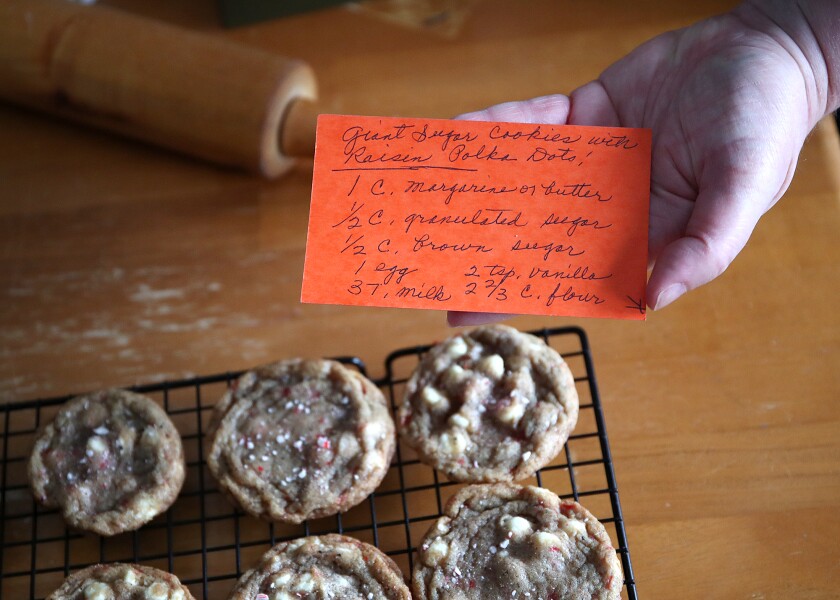 Giant Sugar Cookies with
Raisin Polka Dots!
1 C. margarine or butter
1/2 C. granulated sugar
1/2 C. brown sugar
1 egg 2 tsp. vanilla
3 T. milk 2 2/3 C. flour